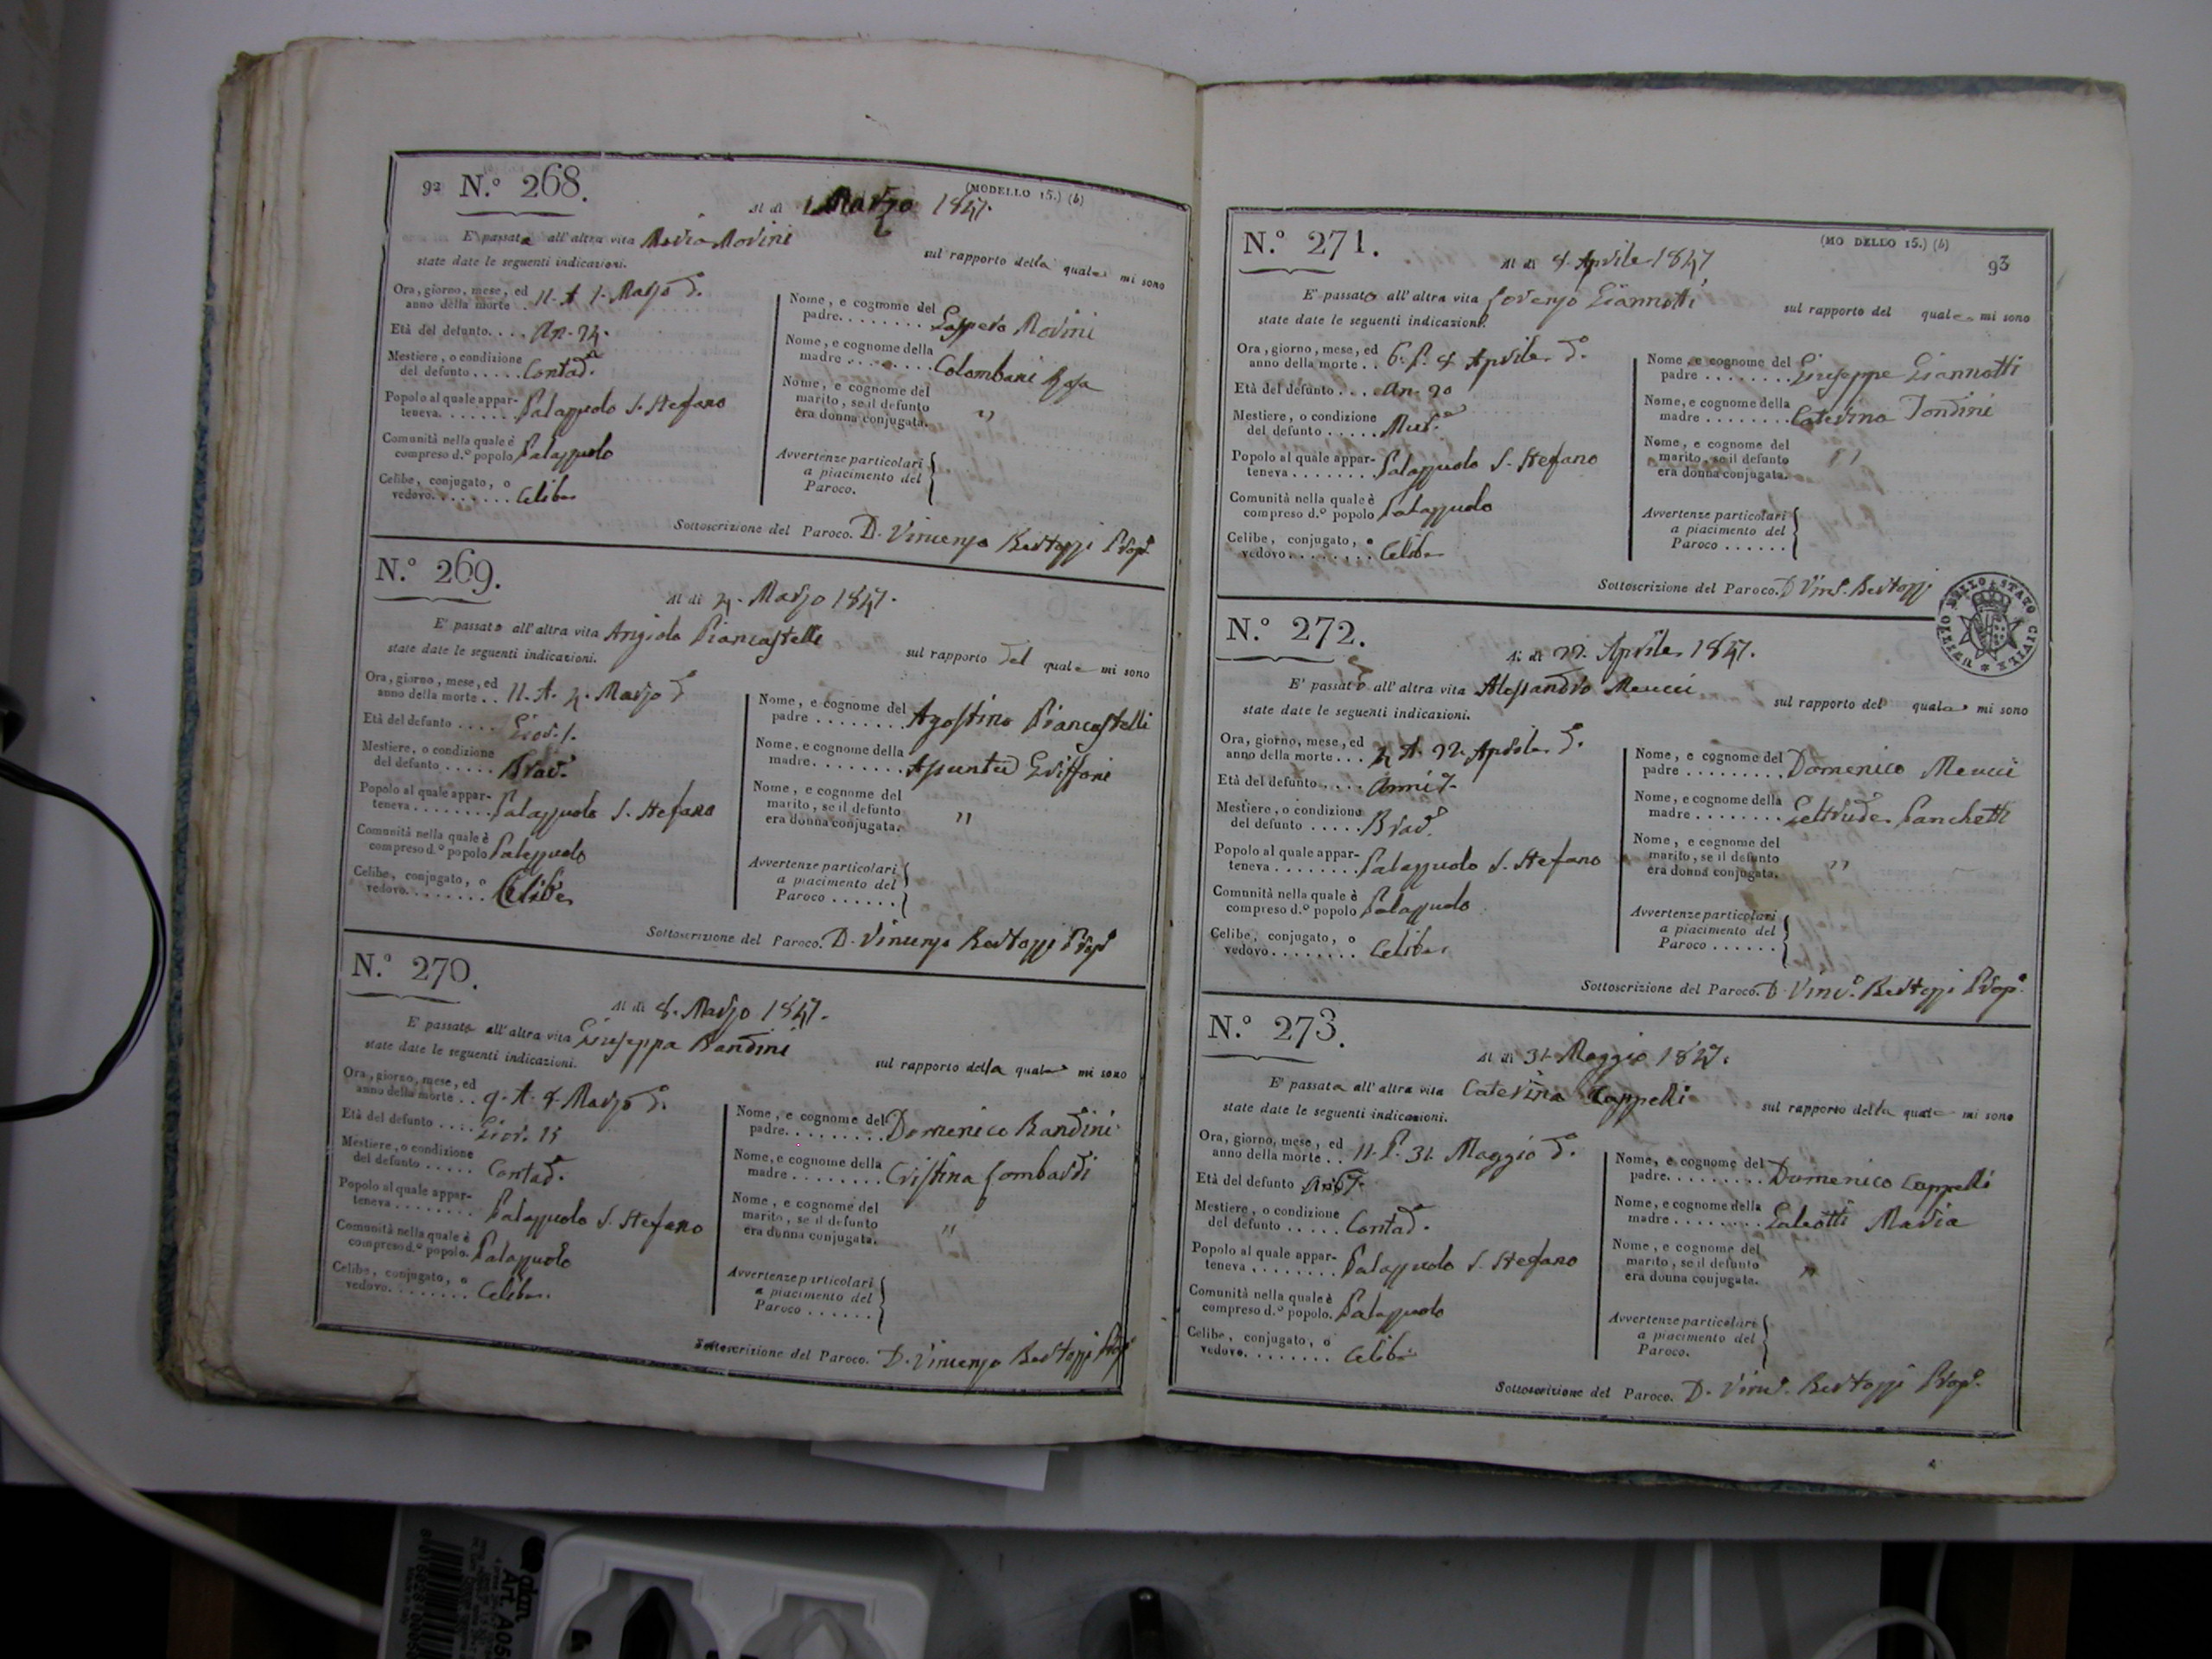 92 N.° 268. (MODELLO 15.) (b)
Al dì 1 Marzo 1847.
E' passata all'altra vita Maria Modini sul rapporto della quale mi sono
state date le seguenti indicazioni.
Ora, giorno, mese, ed
anno della morte . 11. A 1. Marzo d.°
Età del defunto. . . . An. 74.
Mestiere, o condizione
del defunto . . . . . Contad.
Popolo al quale appar-
teneva. . . . . . . . Palazzuolo S. Stefano
Comunità nella quale è
compreso d.° popolo Palazzuolo
Celibe, conjugato, o
vedovo. . . . . . . . Celibe
Nome, e cognome del
padre. . . . . . . . Gaspero Modini
Nome, e cognome della
madre . . . . . . . Colombani Rosa
Nome, e cognome del
marito, se il defunto
era donna conjugata. "
Avvertenze particolari
a piacimento del
Paroco.
Sottoscrizione del Paroco. D. Vincenzo Bertozzi Prop.°
N.° 269.
Al dì 4. Marzo 1847.
E' passato all'altra vita Angiolo Piancastelli sul rapporto del quale mi sono
state date le seguenti indicazioni.
Ora, giorno, mese, ed
anno della morte . . 11. A. 4. Marzo d.°
Età del defunto . . . . Gior. 1.
Mestiere, o condizione
del defunto . . . . . Brac.
Popolo al quale appar-
teneva . . . . . . . . Palazzuolo S. Stefano
Comunità nella quale è
compreso d.° popolo Palazzuolo
Celibe, conjugato, o
vedovo. . . . . . . . Celibe
Nome, e cognome del
padre . . . . . . . . Agostino Piancastelli
Nome, e cognome della
madre. . . . . . . . Assunta Griffoni
Nome, e cognome del
marito, se il defunto
era donna conjugata. "
Avvertenze particolari
a piacimento del
Paroco . . . . . .
Sottoscrizione del Paroco. D. Vincenzo Bertozzi Prop.°
N.° 270.
Al dì 8. Marzo 1847.
E' passata all'altra vita Giuseppa Bandini sul rapporto della quale mi sono
state date le seguenti indicazioni.
Ora, giorno, mese, ed
anno della morte . . 9. A. 8. Marzo d.°
Età del defunto . . . . Gior. 15
Mestiere, o condizione
del defunto . . . . . Contad.
Popolo al quale appar-
teneva . . . . . . . . Palazzuolo S. Stefano
Comunità nella quale è
compreso d.° popolo. Palazzuolo
Celibe, conjugato, o
vedovo. . . . . . . . Celibe.
Nome, e cognome del
padre. . . . . . . . . Domenico Bandini
Nome, e cognome della
madre . . . . . . . . Cristina Lombardi
Nome, e cognome del
marito, se il defunto
era donna conjugata. "
Avvertenze particolari
a piacimento del
Paroco . . . . . .
Sottoscrizione del Paroco. D. Vincenzo Bertozzi Prop.°
N.° 271. (MODELLO 15.) (b)
93
Al dì 8. Aprile 1847
E' passato all'altra vita Lorenzo Giannotti sul rapporto del quale mi sono
state date le seguenti indicazioni.
Ora, giorno, mese, ed
anno della morte . . 6. P. 8 Aprile d.°
Età del defunto . . . An. 20
Mestiere, o condizione
del defunto . . . . .
Popolo al quale appar-
teneva . . . . . . . Palazzuolo S. Stefano
Comunità nella quale è
compreso d.° popolo Palazzuolo
Celibe, conjugato, o
vedovo. . . . . . . . Celibe
Nome, e cognome del
padre . . . . . . . . Giuseppe Giannotti
Nome, e cognome della
madre . . . . . . . . Caterina Tondini
Nome, e cognome del
marito, se il defunto
era donna conjugata. "
Avvertenze particolari
a piacimento del
Paroco . . . . . .
Sottoscrizione del Paroco. D. Vinc. Bertozzi
UFFIZIO DELLO STATO CIVILE
N.° 272.
Al dì 22. Aprile 1847.
E' passato all'altra vita Alessandro Meucci sul rapporto del quale mi sono
state date le seguenti indicazioni.
Ora, giorno, mese, ed
anno della morte . . . 4 A. 22. Aprile d.°
Età del defunto . . . . Anni 7
Mestiere, o condizione
del defunto . . . . . Brac.
Popolo al quale appar-
teneva . . . . . . . . Palazzuolo S. Stefano
Comunità nella quale è
compreso d.° popolo Palazzuolo
Celibe, conjugato, o
vedovo. . . . . . . . Celibe.
Nome, e cognome del
padre . . . . . . . . . Domenico Meucci
Nome, e cognome della
madre . . . . . . . . Geltrude Panchetti
Nome, e cognome del
marito, se il defunto
era donna conjugata. "
Avvertenze particolari
a piacimento del
Paroco . . . . . .
Sottoscrizione del Paroco. D. Vinc.° Bertozzi Prop.°
N.° 273.
Al dì 31. Maggio 1847.
E' passata all'altra vita Caterina Cappelli sul rapporto della quale mi sono
state date le seguenti indicazioni.
Ora, giorno, mese, ed
anno della morte . . 11. P. 31. Maggio d.°
Età del defunto An. 67.
Mestiere, o condizione
del defunto . . . . . Contad.
Popolo al quale appar-
teneva . . . . . . . . Palazzuolo S. Stefano
Comunità nella quale è
compreso d.° popolo. Palazzuolo
Celibe, conjugato, o
vedovo. . . . . . . . Celibe
Nome, e cognome del
padre. . . . . . . . . Domenico Cappelli
Nome, e cognome della
madre . . . . . . . . Galeotti Maria
Nome, e cognome del
marito, se il defunto
era donna conjugata. "
Avvertenze particolari
a piacimento del
Paroco.
Sottoscrizione del Paroco. D. Vinc. Bertozzi Prop.°
Art. A05